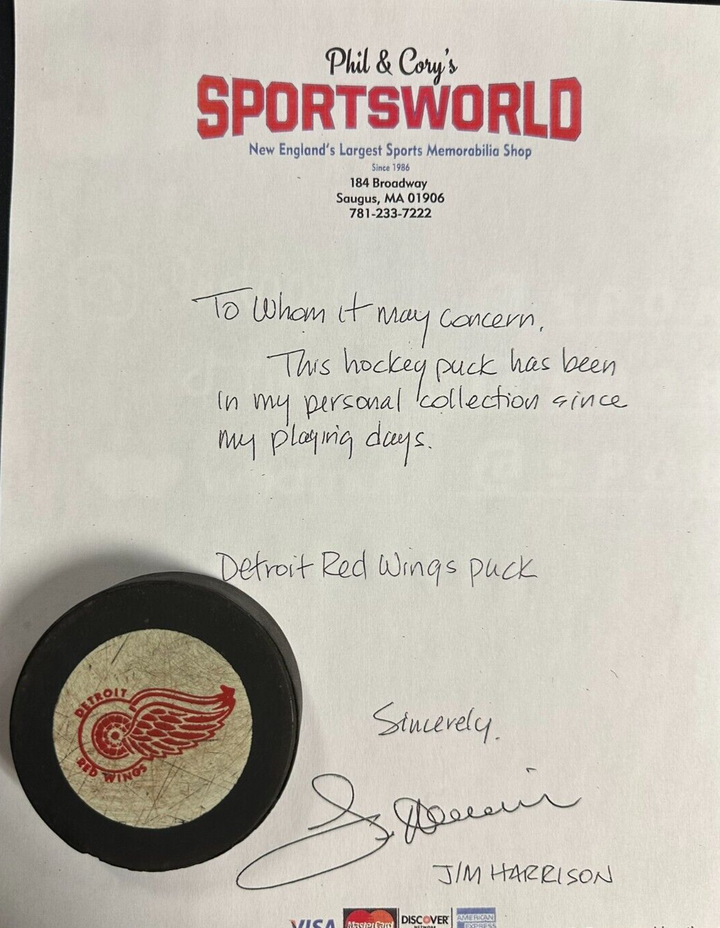 Phil & Cory's
SPORTSWORLD
New England's Largest Sports Memorabilia Shop
Since 1986
184 Broadway
Saugus, MA 01906
781-233-7222
To Whom it may concern,
This hockey puck has been
in my personal collection since
my playing days.
Detroit Red Wings puck
DETROIT
RED WINGS
Sincerely,
J. Harrison
JIM HARRISON
VISA MasterCard DISCOVER AMERICAN
NETWORK EXPRESS